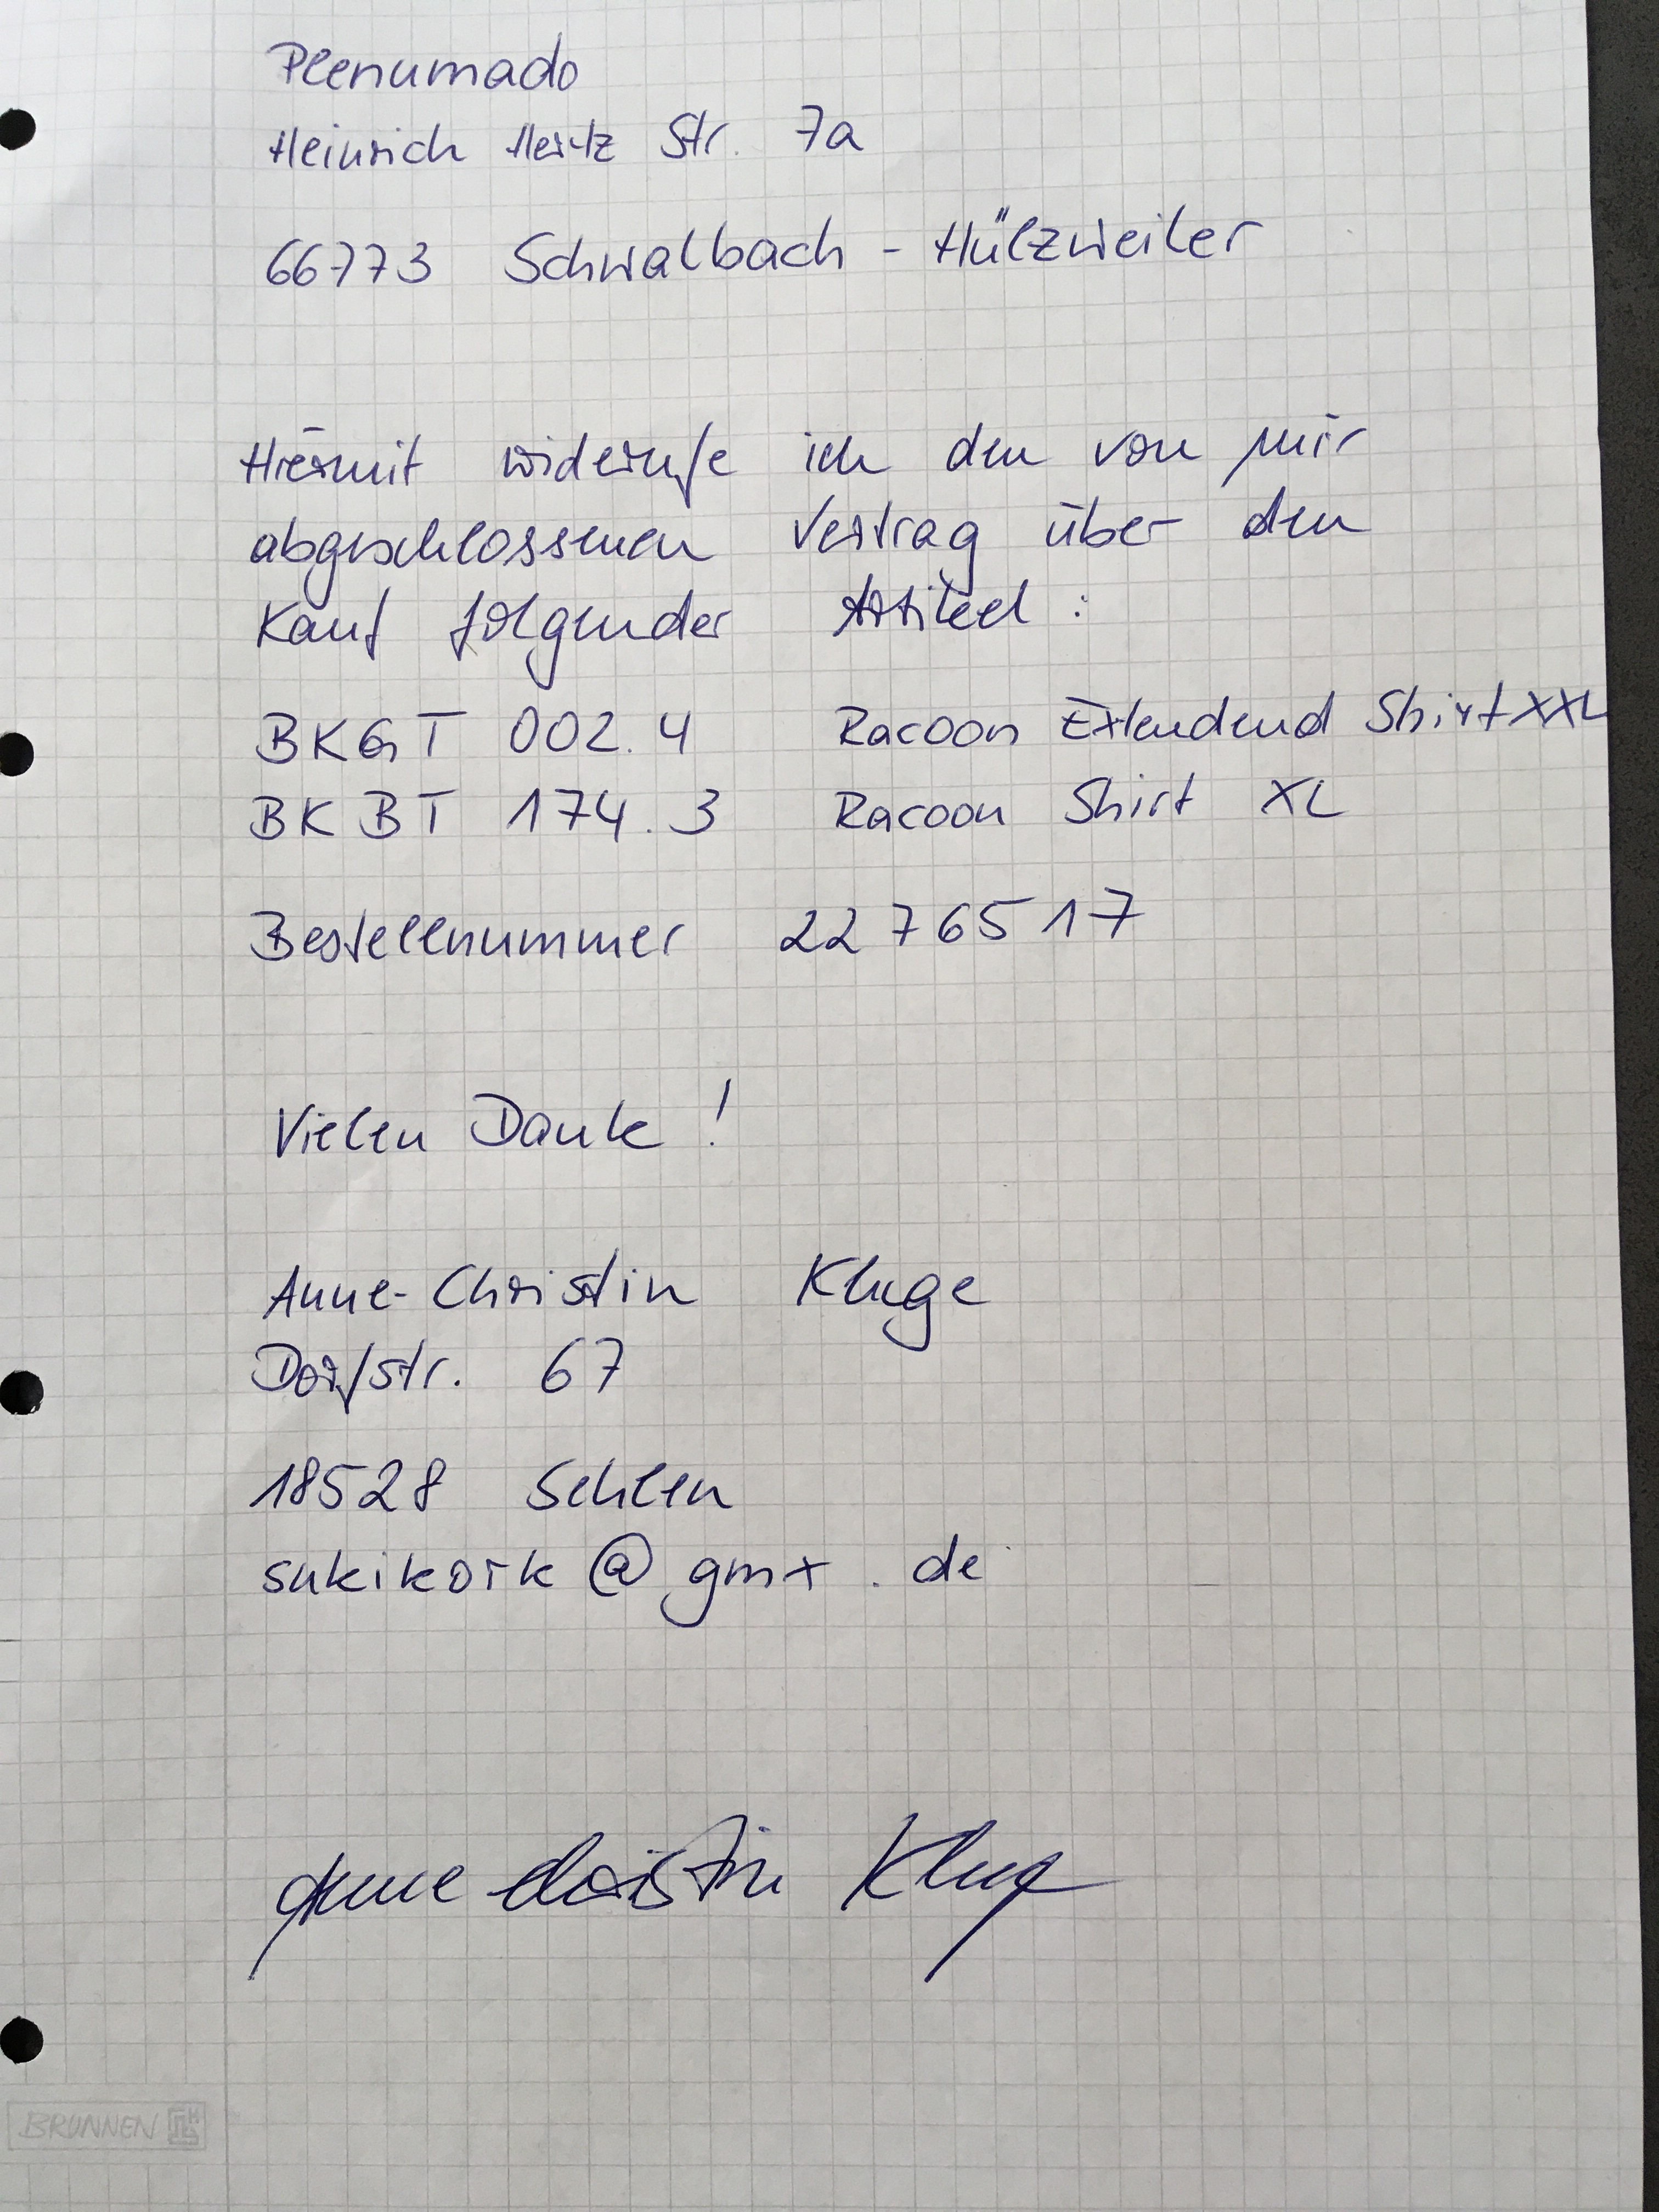 Plenumado
Heinrich Hertz Str. 7a
66773 Schwalbach - Hülzweiler
Hiermit widerrufe ich den von mir
abgeschlossenen Vertrag über den
Kauf folgender Artikel :
BKGT 002.4 Racoon Extendend Shirt XXL
BKBT 174.3 Racoon Shirt XL
Bestellnummer 2276517
Vielen Dank !
Anne-Christin Kluge
Dorfstr. 67
18528 Sehlen
sukikork@gmx.de
Anne Christin Kluge
BRUNNEN